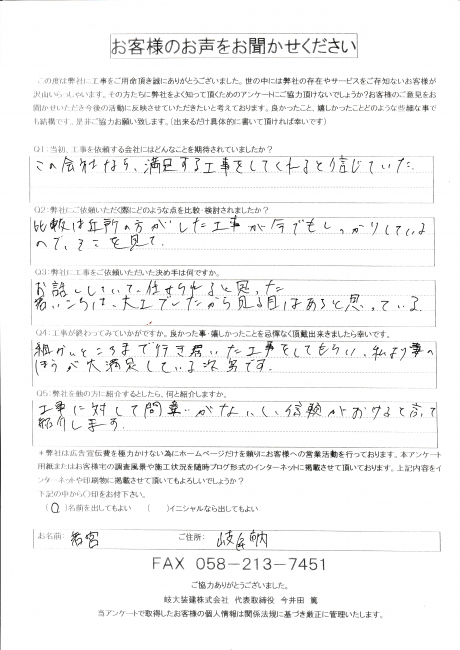 お客様のお声をお聞かせください
この度は弊社に工事をご用命頂き誠にありがとうございました。世の中には弊社の存在やサービスをご存知ないお客様が
沢山いらっしゃいます。その方たちに弊社をよく知って頂くためのアンケートにご協力頂けないでしょうか?お客様のご意見をお
聞かせいただき今後の活動に反映させていただきたいと考えております。良かったこと、嬉しかったことなどの些細な事で
も結構です。是非ご協力お願い致します。(出来るだけ具体的に書いて頂ければ幸いです)
Q1:当初、工事を依頼する会社にはどんなことを期待されていましたか?
この会社なら、満足する工事をしてくれると信じていた.
Q2:弊社にご依頼いただく際にどのような点を比較・検討されましたか?
比較は近所の方がした工事が今でもしっかりしている
ので、そこを見て.
Q3:弊社に工事をご依頼いただいた決め手は何ですか。
お話ししていて、任せられると思った
若いころは、大工でしたから見る目はあると思っている.
Q4:工事が終わってみていかがですか。良かった事・嬉しかったことを忌憚なく頂戴出来ましたら幸いです。
細かいところまで行き届いた工事をしてもらい、私より妻の
ほうが大満足している次第です.
Q5:弊社を他の方に紹介するとしたら、何と紹介しますか。
工事に対して間違いがないし、信頼がおけると言って
紹介します.
*弊社は広告宣伝費を極力かけない為にホームページだけを頼りにお客様への営業活動を行っております。本アンケート
用紙またはお客様宅の調査風景や施工状況を随時ブログ形式のインターネットに掲載させて頂いております。上記内容をイ
ンターネットや印刷物に掲載させて頂いてもよろしいでしょうか?
下記の中から○印をお付下さい。
(○)名前を出してもよい ( )イニシャルなら出してもよい
お名前: 若宮 ご住所: 岐阜市内
FAX 058-213-7451
ご協力ありがとうございました。
岐大装建株式会社 代表取締役 今井田 篤
当アンケートで取得したお客様の個人情報は関係法規に基づき厳正に管理いたします。